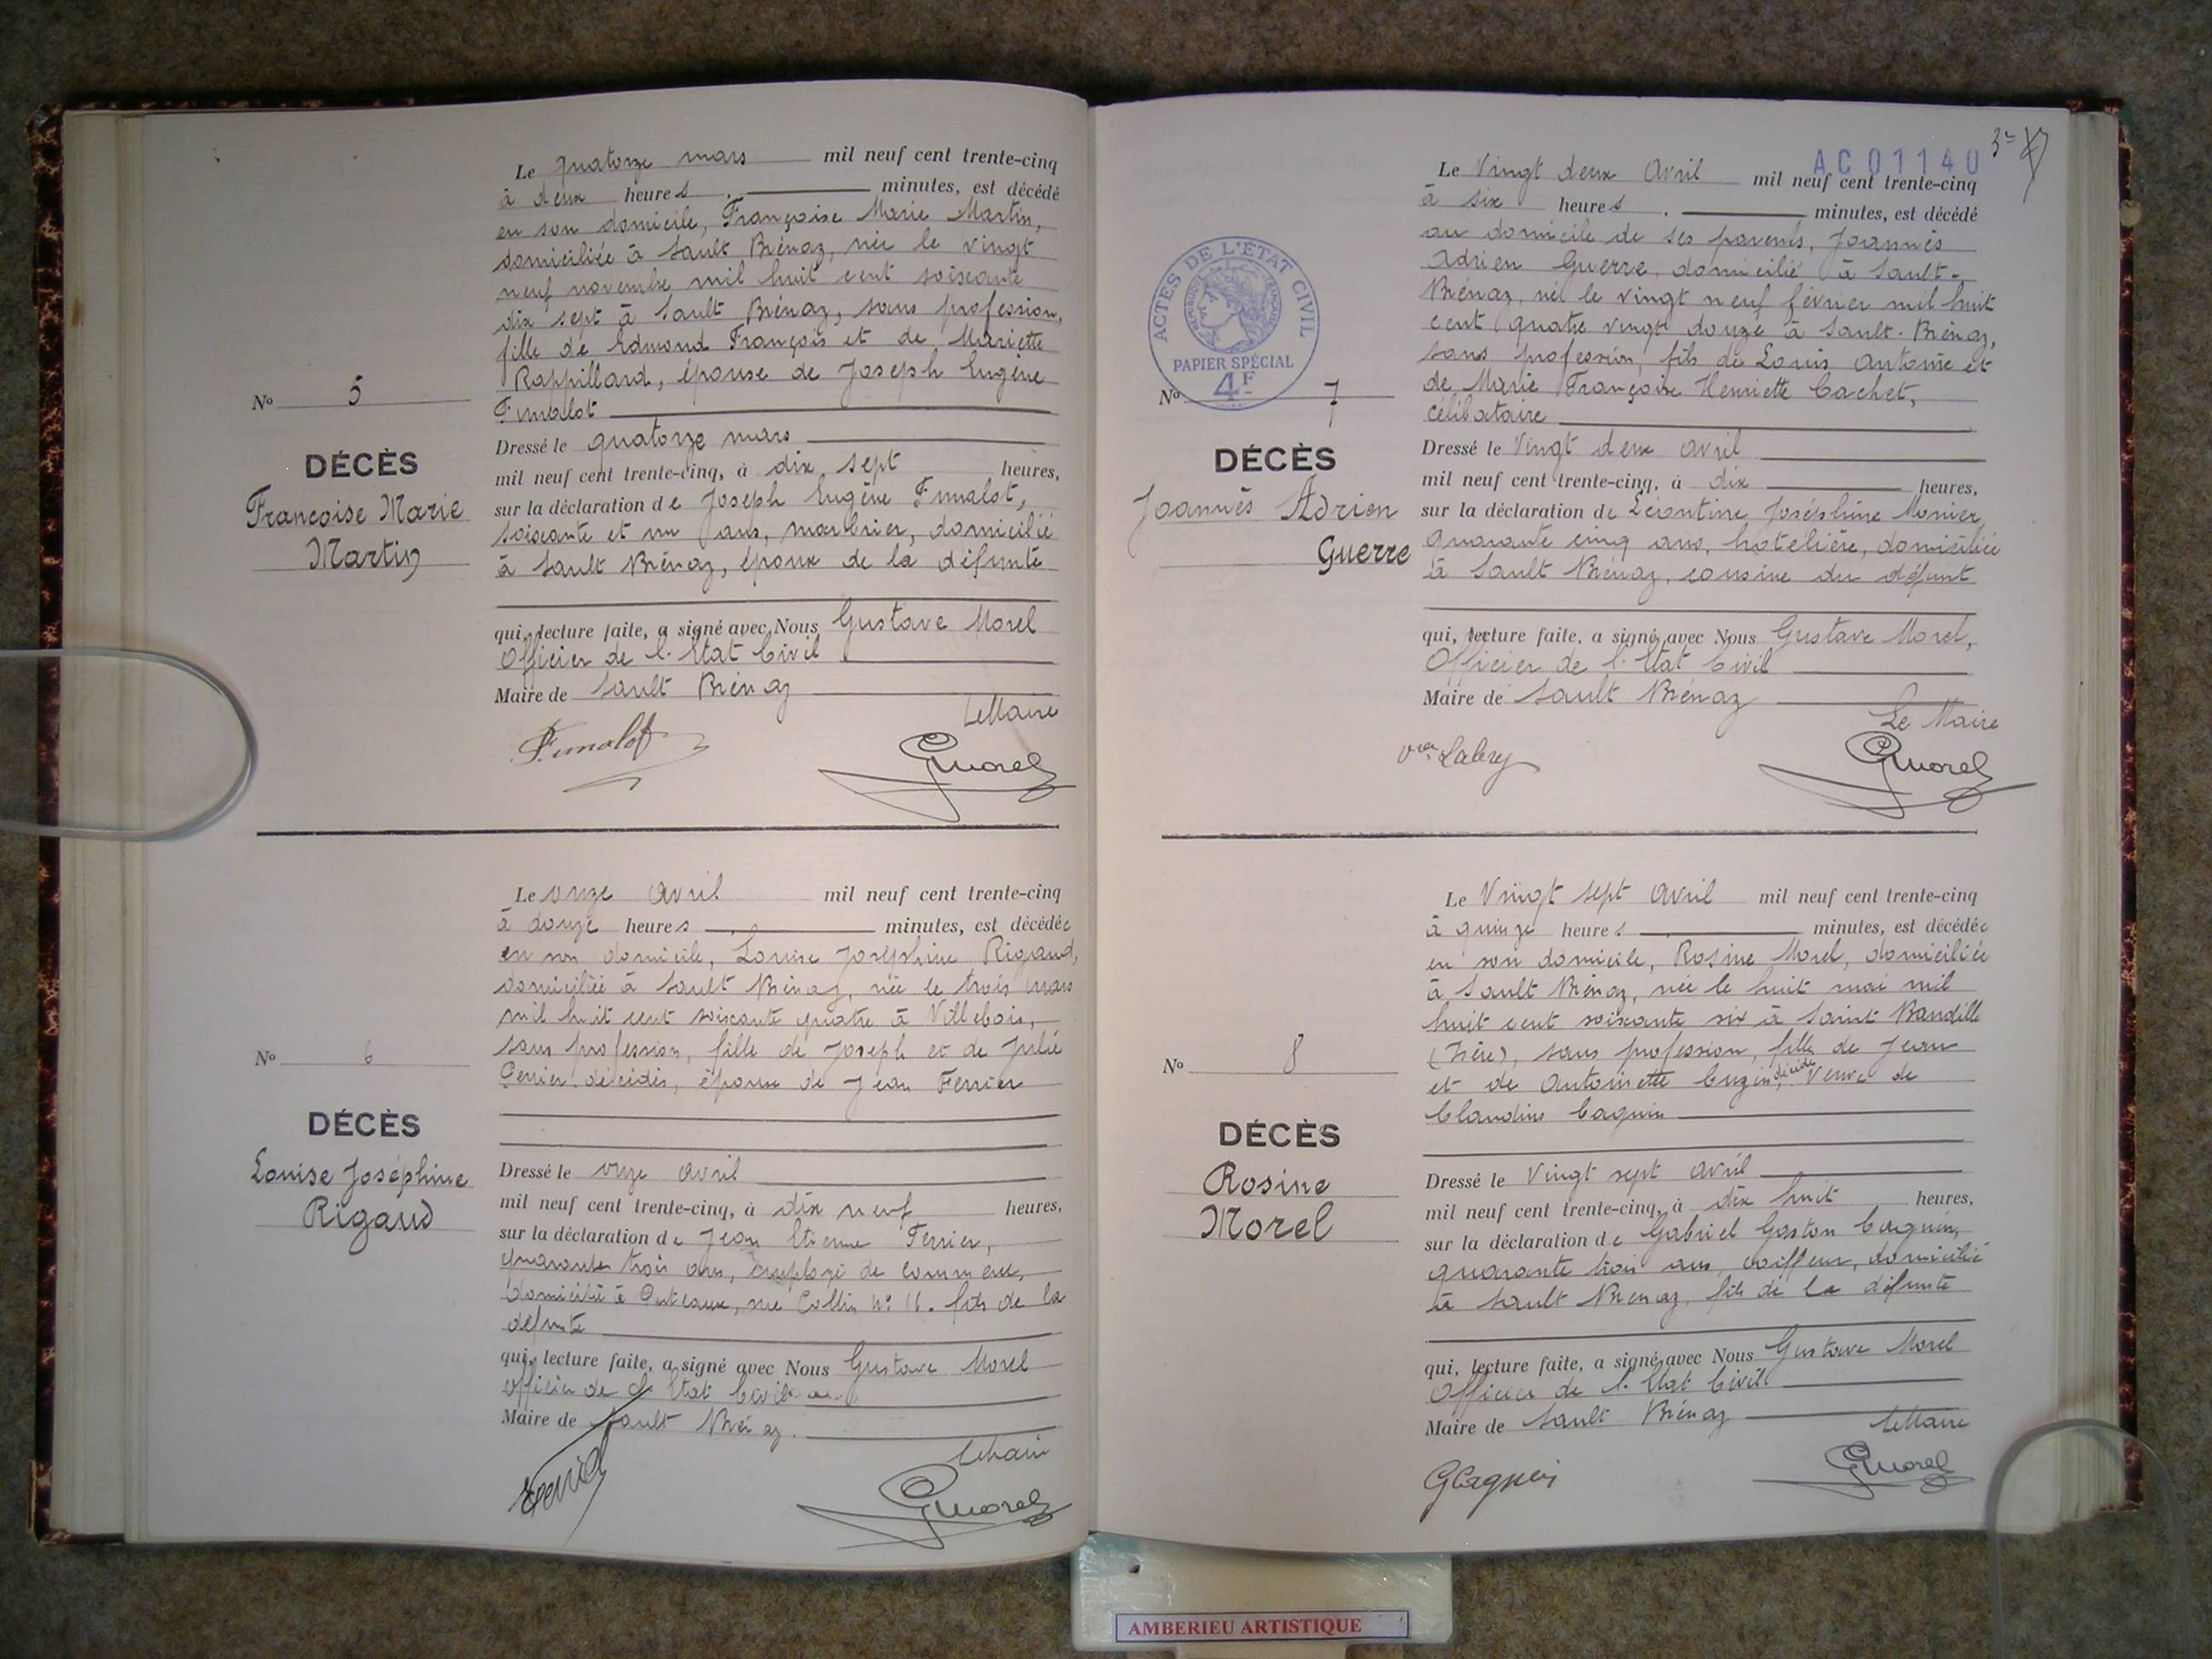 Le quatorze mars mil neuf cent trente-cinq
à deux heures minutes, est décédé
en son domicile, Françoise Marie Martin,
domiciliée à Sault Brénaz, née le vingt
neuf novembre mil huit cent soixante
dix sept à Sault Brénaz, sans profession,
fille de Edmond François et de Mariette
Rappillard, épouse de Joseph Eugène
No 5
DÉCÈS
Françoise Marie
Martin
Dressé le quatorze mars
mil neuf cent trente-cinq, à dix sept heures,
sur la déclaration de Joseph Eugène
soixante et un ans, marbrier, domicilié
à Sault Brénaz, époux de la défunte
qui, lecture faite, a signé avec Nous Gustave Morel
Officier de l'Etat Civil
Maire de Sault Brénaz
Le Maire
GMorel
Le onze Avril mil neuf cent trente-cinq
à douze heures minutes, est décédée
en son domicile, Louise Joséphine Rigaud,
domiciliée à Sault Brénaz, née le trois mars
mil huit cent soixante quatre à Villebois,
sans profession, fille de Joseph et de Julie
Perrier décédés, épouse de Jean Ferrier
No 6
DÉCÈS
Louise Joséphine
Rigaud
Dressé le onze avril
mil neuf cent trente-cinq, à dix neuf heures,
sur la déclaration de Jean Etienne Ferrier,
quarante trois ans, employé de commerce,
domicilié à Puteaux, rue Collin No 16. fils de la
défunte
qui, lecture faite, a signé avec Nous Gustave Morel
Officier de l'Etat Civil
Maire de Sault Brénaz.
Le Maire
Ferrier
GMorel
AC01140
Le Vingt deux Avril mil neuf cent trente-cinq
à six heures minutes, est décédé
au domicile de ses parents, Joannès
Adrien Guerre, domicilié à Sault-
Brénaz, né le vingt neuf février mil huit
cent quatre vingt douze à Sault-Brénaz,
sans profession, fils de Louis Antoine et
de Marie Françoise Henriette Cachet,
célibataire
ACTES DE L'ETAT CIVIL
RÉPUBLIQUE FRANÇAISE
PAPIER SPÉCIAL
4F
No 7
DÉCÈS
Joannès Adrien
Guerre
Dressé le Vingt deux avril
mil neuf cent trente-cinq, à dix heures,
sur la déclaration de Léontine Joséphine Monier,
quarante cinq ans, hotelière, domiciliée
à Sault Brénaz, cousine du défunt
qui, lecture faite, a signé avec Nous Gustave Morel,
Officier de l'Etat Civil
Maire de Sault Brénaz
Le Maire
GMorel
Le Vingt sept Avril mil neuf cent trente-cinq
à quinze heures minutes, est décédée
en son domicile, Rosine Morel, domiciliée
à Sault Brénaz, née le huit mai mil
huit cent soixante six à Saint Baudille
(Isère), sans profession, fille de Jean
et de Antoinette Cuzin, décédés Veuve de
Claudius Caguin
No 8
DÉCÈS
Rosine
Morel
Dressé le Vingt sept avril
mil neuf cent trente-cinq, à dix huit heures,
sur la déclaration de Gabriel Gaston Caguin,
quarante trois ans, coiffeur, domicilié
à Sault Brénaz, fils de la défunte
qui, lecture faite, a signé avec Nous Gustave Morel
Officier de l'Etat Civil
Maire de Sault Brénaz
Le Maire
GCaguin
GMorel
AMBERIEU ARTISTIQUE